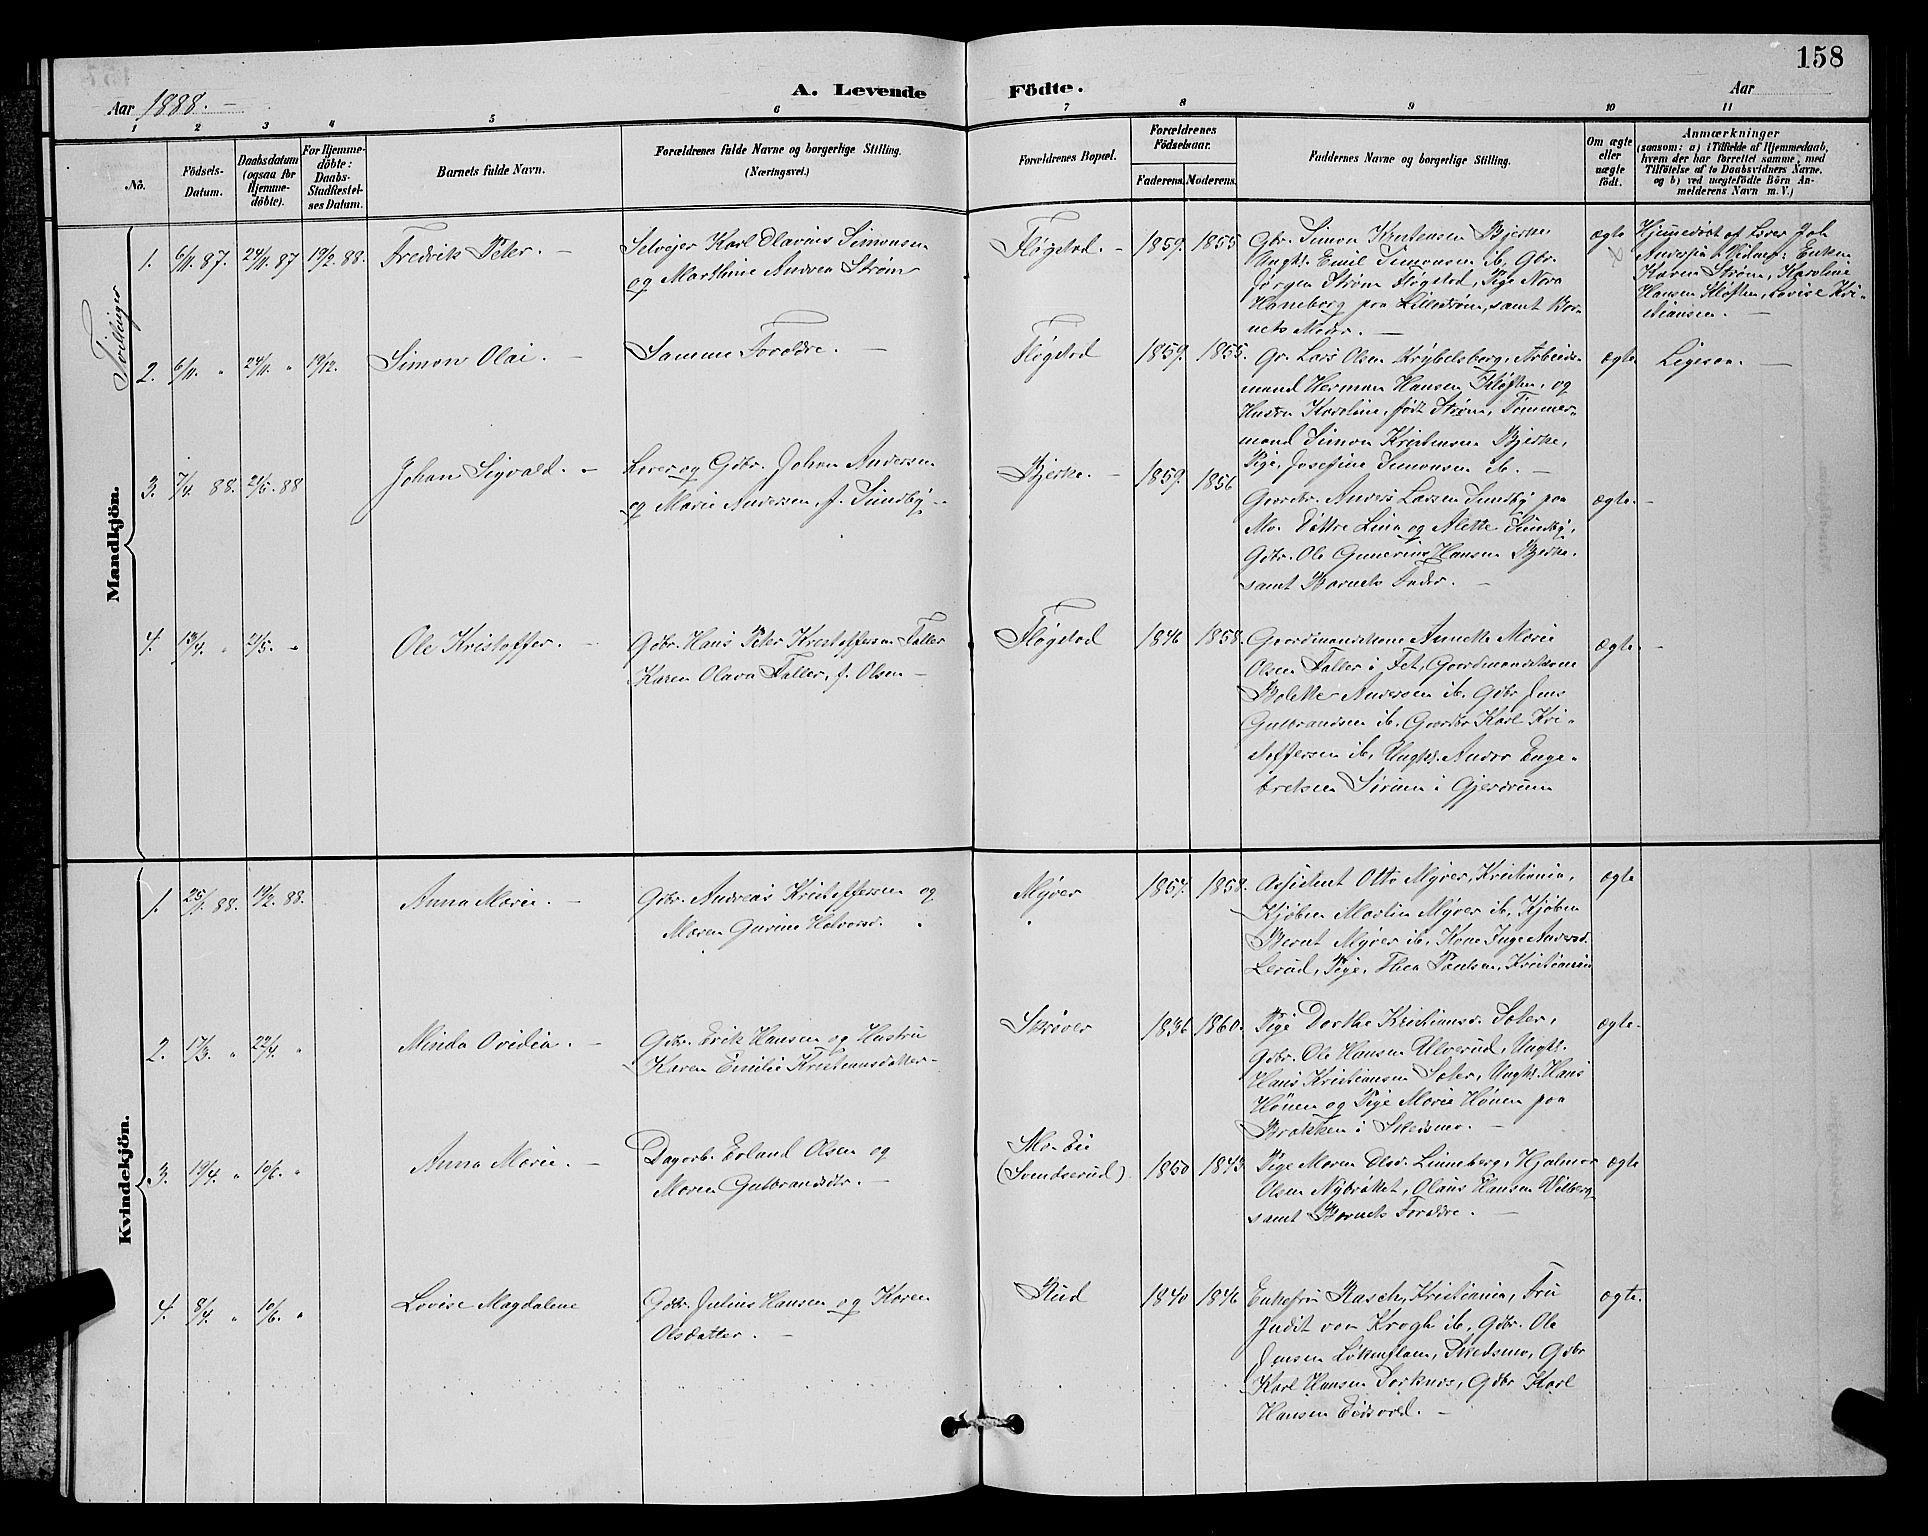 158
Aar 1888. –
A. Levende Födte.
Aar
1 2 3 4 5 6 7 8 9 10 11
No.
Födsels-
Datum.
Daabsdatum
(ogsaa for
Hjemme-
döbte).
For Hjemme-
döbte:
Daabs-
Stadfæstel-
ses Datum.
Barnets fulde Navn.
Forældrenes fulde Navne og borgerlige Stilling.
(Næringsvei.)
Forældrenes Bopæl.
Forældrenes
Födselsaar.
Faderens. Moderens.
Faddernes Navne og borgerlige Stilling.
Om ægte
eller
uægte
født.
Anmærkninger
(saasom: a) i Tilfælde af Hjemmedaab,
hvem der har forrettet samme, med
Tilföielse af to Daabsvidners Navne,
og b) ved uægtefödte Börn An-
melderens Navn m. V.)
Mandkjön.
Tvillinger
1. 6/11. 87. 24/11. 87 19/2. 88. Fredrik Peter. –
Selvejer Karl Olavius Simonsen
og Marthine Andrea Strøm
Fløgstad. – 1859. 1855
Gbr. Simon Kristensen Bjerke
Ungk. Emil Simonsen ib. Gbr.
Jørgen Strøm Fløgstad, Pige Nora
Haneborg paa Lillestrøm, samt Bar-
nets Moder. –
ægte
Hjemmedøbt af Lærer Joh
Andersen Vidner: Enken
Karen Strøm, Karoline
Hansen Kløften, Lovise Kri-
stiansen. –
2. 6/11. " 24/11. " 19/12. Simon Olai. –
Samme Forældre. –
Fløgstad 1859. 1855.
Gr. Lars Olsen Krybelsberg, Arbeids-
mand Herman Hansen Kløften, og
Hustru Karoline, født Strøm, Tømmer-
mand Simon Kristensen Bjerke,
Pige Josefine Simonsen ib. –
ægte Ligesaa. –
3. 7/4. 88. 21/5. 88 Johan Sigvald. –
Lærer og Gdbr. Johan Andersen
og Marie Andersen, f. Sundby –
Bjerke. – 1859. 1856
Gaardbr. Anders Larsen Sundby paa
Mo. Døttre Lina og Alette Sundby,
Gdbr. Ole Gunerius Hansen Bjerke,
samt Barnets Fader. –
ægte. –
4. 13/4. " 21/5. " Ole Kristoffer. –
Gdbr. Hans Peter Kristoffersen Faller
Karen Olava Faller, f. Olsen –
Fløgstad 1846 1858.
Gaardmandskone Annette Marie
Olsen Faller i Fet, Gaardmandskone
Bolette Andersen ib. Gdbr Jens
Gulbrandsen ib. Gaardbr Karl Kri-
stoffersen ib, Ungk. Andor Enge-
bretsen Sørum i Gjerdrum
ægte. –
Kvindekjön.
1. 25/1. 88. 19/2. 88. Anna Marie. –
Gdbr. Andreas Kristoffersen og
Maren Gurine Halvorsd. "
Myrer 1857. 1858.
Assistent Otto Myrer, Kristiania,
Kjøbm Martin Myrer ib, Kjøbm
Bernt Myrer ib, Kone Inge Andersd.
Lerud, Pige, Thea Paulsen, Kristiania
ægte
2. 17/3. " 22/4. " Minda Ovidia. –
Gdbr. Erik Hansen og Hustru
Karen Emilie Kristiansdatter –
Skrøver 1836 1860.
Pige Dorthe Kristiansd. Sater,
Gdbr. Ole Hansen Ulverud, Ungk.
Hans Kristiansen Sater, Ungk. Hans
Hønen og Pige Marie Hønen paa
Brakken i Skedsmo. –
ægte.
3. 19/4. " 10/6. " Anna Marie. –
Dagarb. Erland Olsen og
Maren Gulbrandsdtr. –
Mo Eie
(Svendserud) 1860 1843
Pige Maren Olsd. Linneberg, Hjalmar
Olsen Nybråtet, Olaus Hansen Vilberg
samt Barnets Forældre. –
ægte
4. 8/4. " 10/6. " Lovise Magdalene
Gdbr. Julius Hansen og Karen
Olsdatter. –
Rud 1840 1846
Enkefru Rasch, Kristiania, Fru
Judit von Krogh ib, Gdbr. Ole
Jensen Løkenflam, Skedsmo, Gdbr
Karl Hansen Torknes, Gdbr Karl
Hansen Eidsvold. –
ægte.